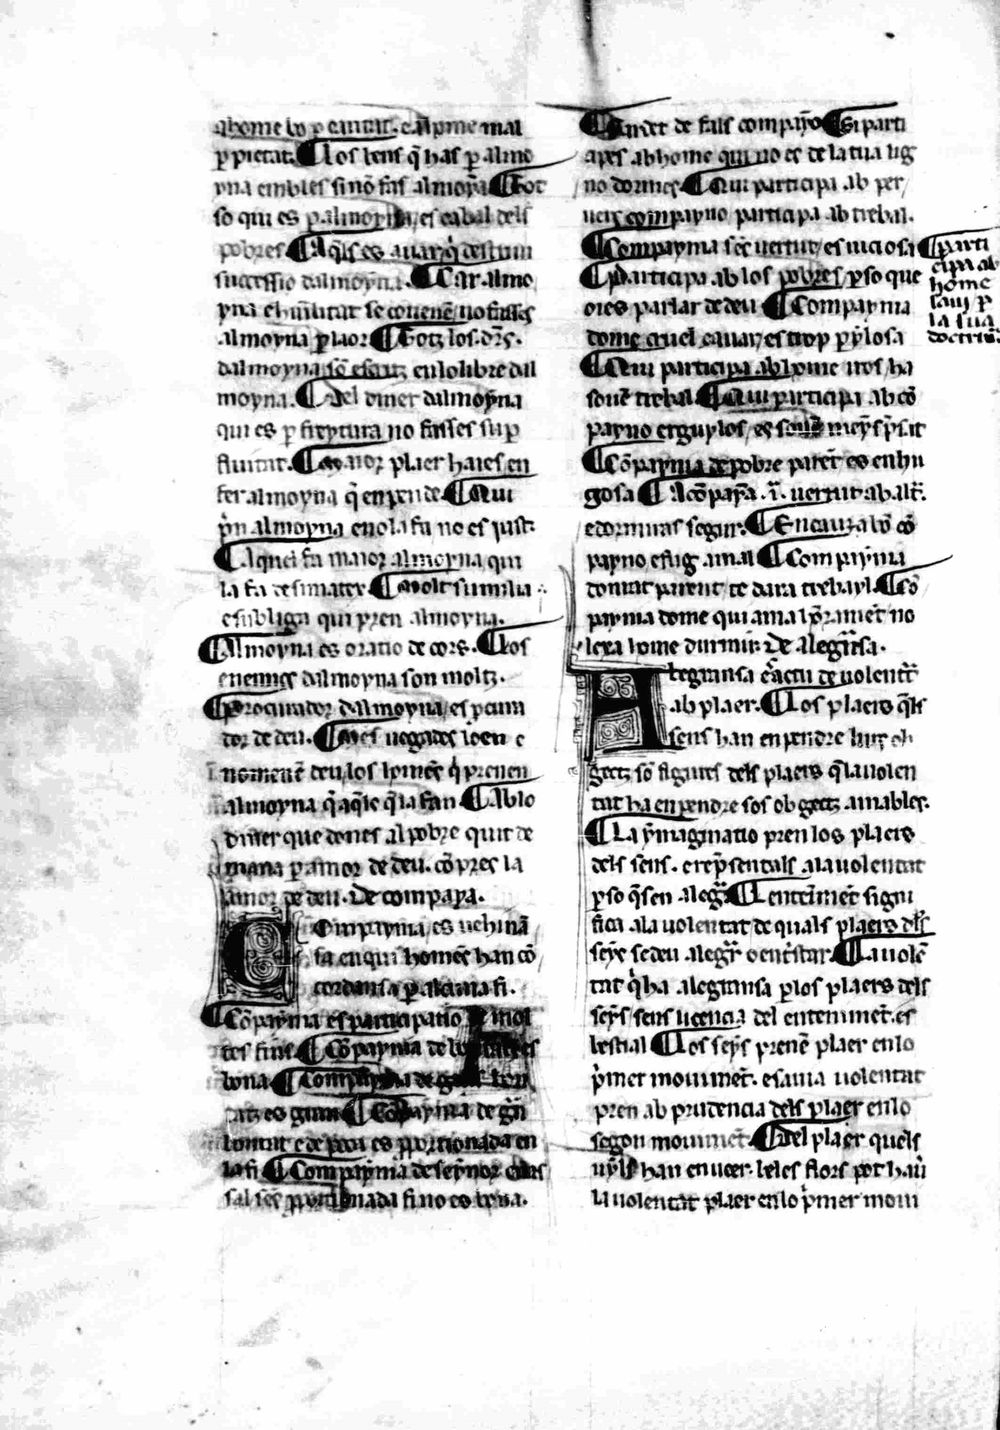 a home bo p caritat. e al pme mal
p pietat. Los bens q has p almo
yna embles si nō fas almoȳa Tot
so qui es p almoyna es cabal dels
pobres Aqls es auar q̇ destruu
successio dalmoyna. Car almo
yna e humilitat se couenē no fasses
almoyna p laor Totz los .drs.
dalmoyna sō escritz en lo libre dal
moyna. Del diner dalmoyna
qui es p freytura no fasses sup
fluitat. Maior plaer haies en
fer almoyna q en pendre Qui
pn almoyna e no la fa no es just
Aquel fa maior almoyna qui
la fa de si mateix Molt sumilia
e subliga qui pren almoyna.
Almoyna es oratio de cors. Los
enemics dalmoyna son moltz.
Procurador dalmoyna es pcura
dor de deu. Mes vegades
nomenē deu los homēs q̇ prenen
almoyna q aqls q la fan Ab lo
diner que dones al pobre quit de
mana p amor de deu. cōpres la
amor de deu. De companya.
Companyia es vehinā
sa en qui homēs han cō
cordansa p alcuna fi.
Cōpaynia es participatio mol
tes fins Cōpaynia de
bona Companyia de gran bon
tatz es gran Cōpaynia de gn
bontat e de poca es pportionada en
la fi Companyia de seynor e
sal sēs pportionada fi no es bona.
Gardet de fals compayo Si parti
apes ab home qui no es de la tua lig
no dormes Qui participa ab per
uers compayno participa ab trebal.
Compaynia sēs uertut es uiciosa
Participa ab los pobres p so que
oies parlar de deu Companyia
dome cruel e auar es trop pylosa
Qui participa ab home iros ha
souē trebal Qui participa ab cō
payno erguylos es
Cōpaynia de pobre parēt es enbu
gosa Acōpaya .i. uertut ab altr.
e dormiras segur. En cauza bō cō
payno e fug al mal Companyia
dontat parent te dara trebayl Cō
paynia dome qui ama
lexa home durmir. De alegrāsa.
Alegransa es actu de uolentat
ab plaer. Los plaers qls
sens han en pendre lurs ob
gectz sō figures dels plaers q la uolen
tat ha en pendre sos obgectz amables.
La ymaginatio pren los plaers
dels sens. e representals a la uolentat
p so q sen alegr Lentenimēt signi
fica a la uolentat de quals plaers dls
seys se deu alegrar o entristar La uolē
tat q̇ ha alegransa p los plaers dels
seys sens licencia del entenimēt. es
bestial Los seys prenē plaer en lo
p̄mer mouimēt. e sauia uolentat
pren ab prudencia dels plaer en lo
segon mouimēt. Del plaer quels
uyls han en ueer beles flors pot hau
la uolentat plaer en lo p̄mer moui
parti
cipa ab
home
saui p
la sua
doctrin